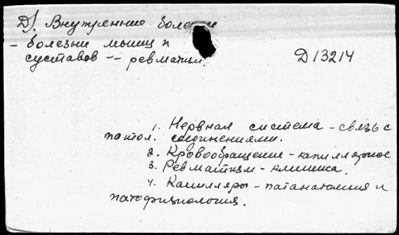 Д). Внутренние болезни
- болезни мышц и
суставов -- ревматизм.
D13214
1. Нервная система - связь с
патол. соединениями.
2. Кровообращение - капиллярное
3. Ревматизм - клиника.
4. Капилляры - патанатомия и
патофизиология.